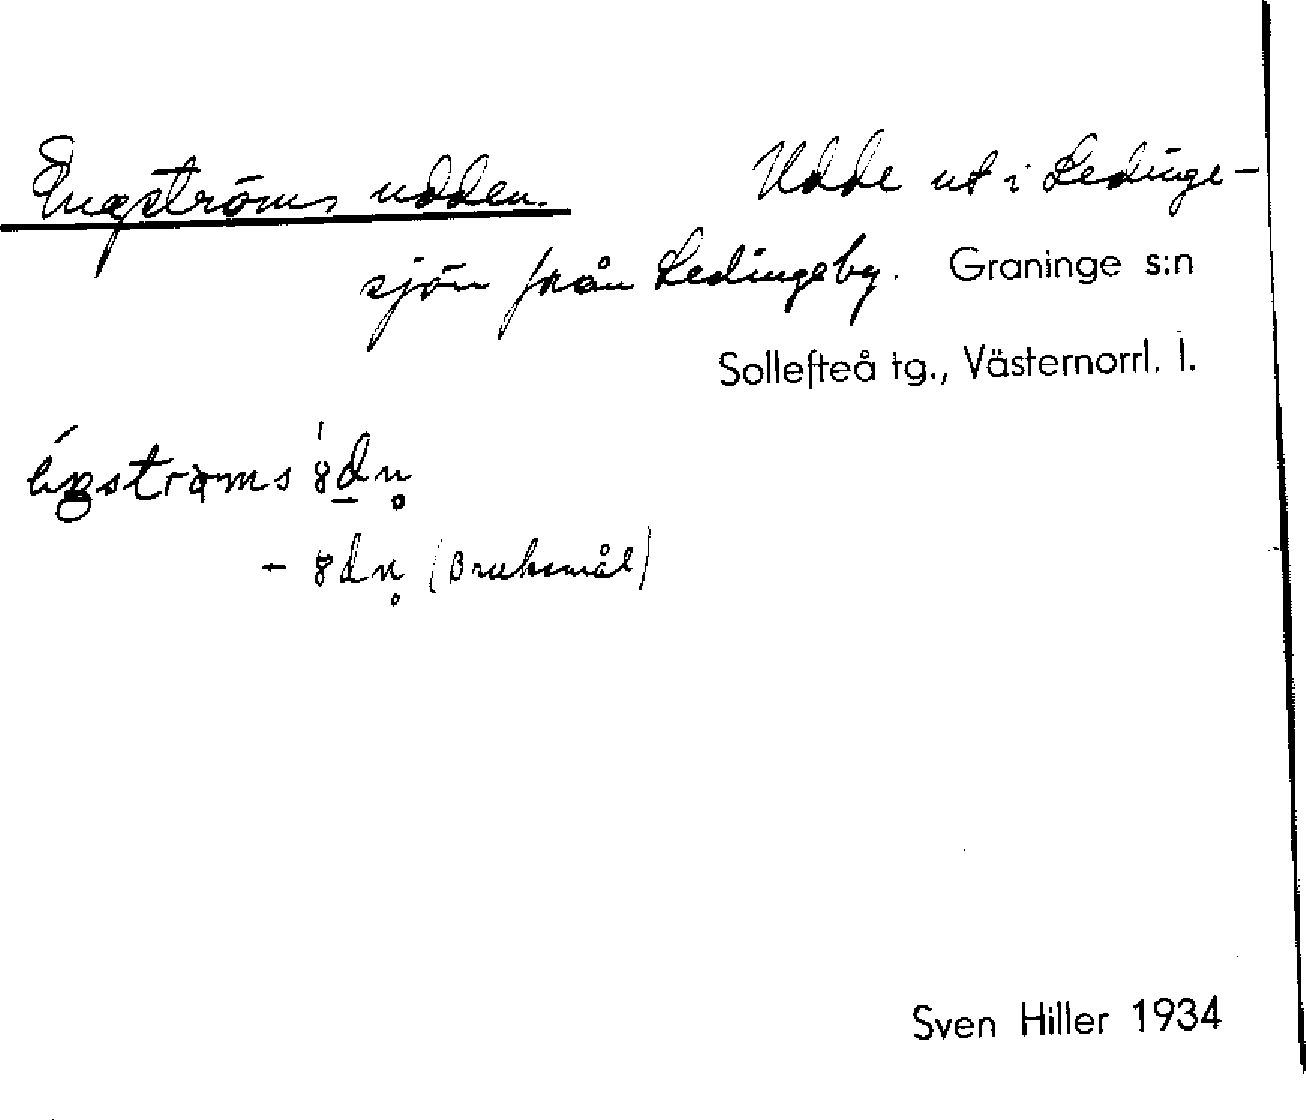 Engströms udden. Udde ut i Ledinge-
sjön från Ledingeby. Graninge s:n
Sollefteå tg., Västernorrl. l.
(Bruksmål)
Sven Hiller 1934